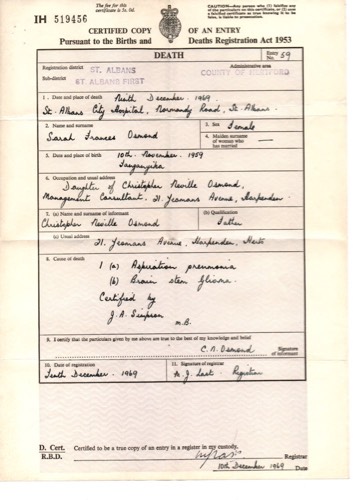 IH 519456
The fee for this certificate is 5s. 0d.
CAUTION—Any person who (1) falsifies any of the particulars on this certificate, or (2) uses a falsified certificate as true knowing it to be false, is liable to prosecution.
CERTIFIED COPY OF AN ENTRY
Pursuant to the Births and Deaths Registration Act 1953
DEATH
Entry No. 59
Registration district ST. ALBANS
Administrative area
Sub-district ST. ALBANS FIRST
COUNTY OF HERTFORD
1. Date and place of death Ninth December, 1969
St. Albans City Hospital, Normandy Road, St. Albans.
2. Name and surname
Sarah Frances Osmond
3. Sex Female
4. Maiden surname of woman who has married —
5. Date and place of birth 10th. November. 1959
Tanganyika
6. Occupation and usual address
Daughter of Christopher Neville Osmond,
Management Consultant. 21, Yeomans Avenue, Harpenden.
7. (a) Name and surname of informant
Christopher Neville Osmond
(b) Qualification
Father
(c) Usual address
21, Yeomans Avenue, Harpenden, Herts
8. Cause of death
1 (a) Aspiration pneumonia
(b) Brain stem Glioma.
Certified by
J. A. Simpson
M.B.
9. I certify that the particulars given by me above are true to the best of my knowledge and belief
C. N. Osmond Signature of informant
10. Date of registration
Tenth December. 1969
11. Signature of registrar
A. J. Last. Registrar
D. Cert.
R.B.D.
Certified to be a true copy of an entry in a register in my custody.
Registrar
10th December 1969 Date